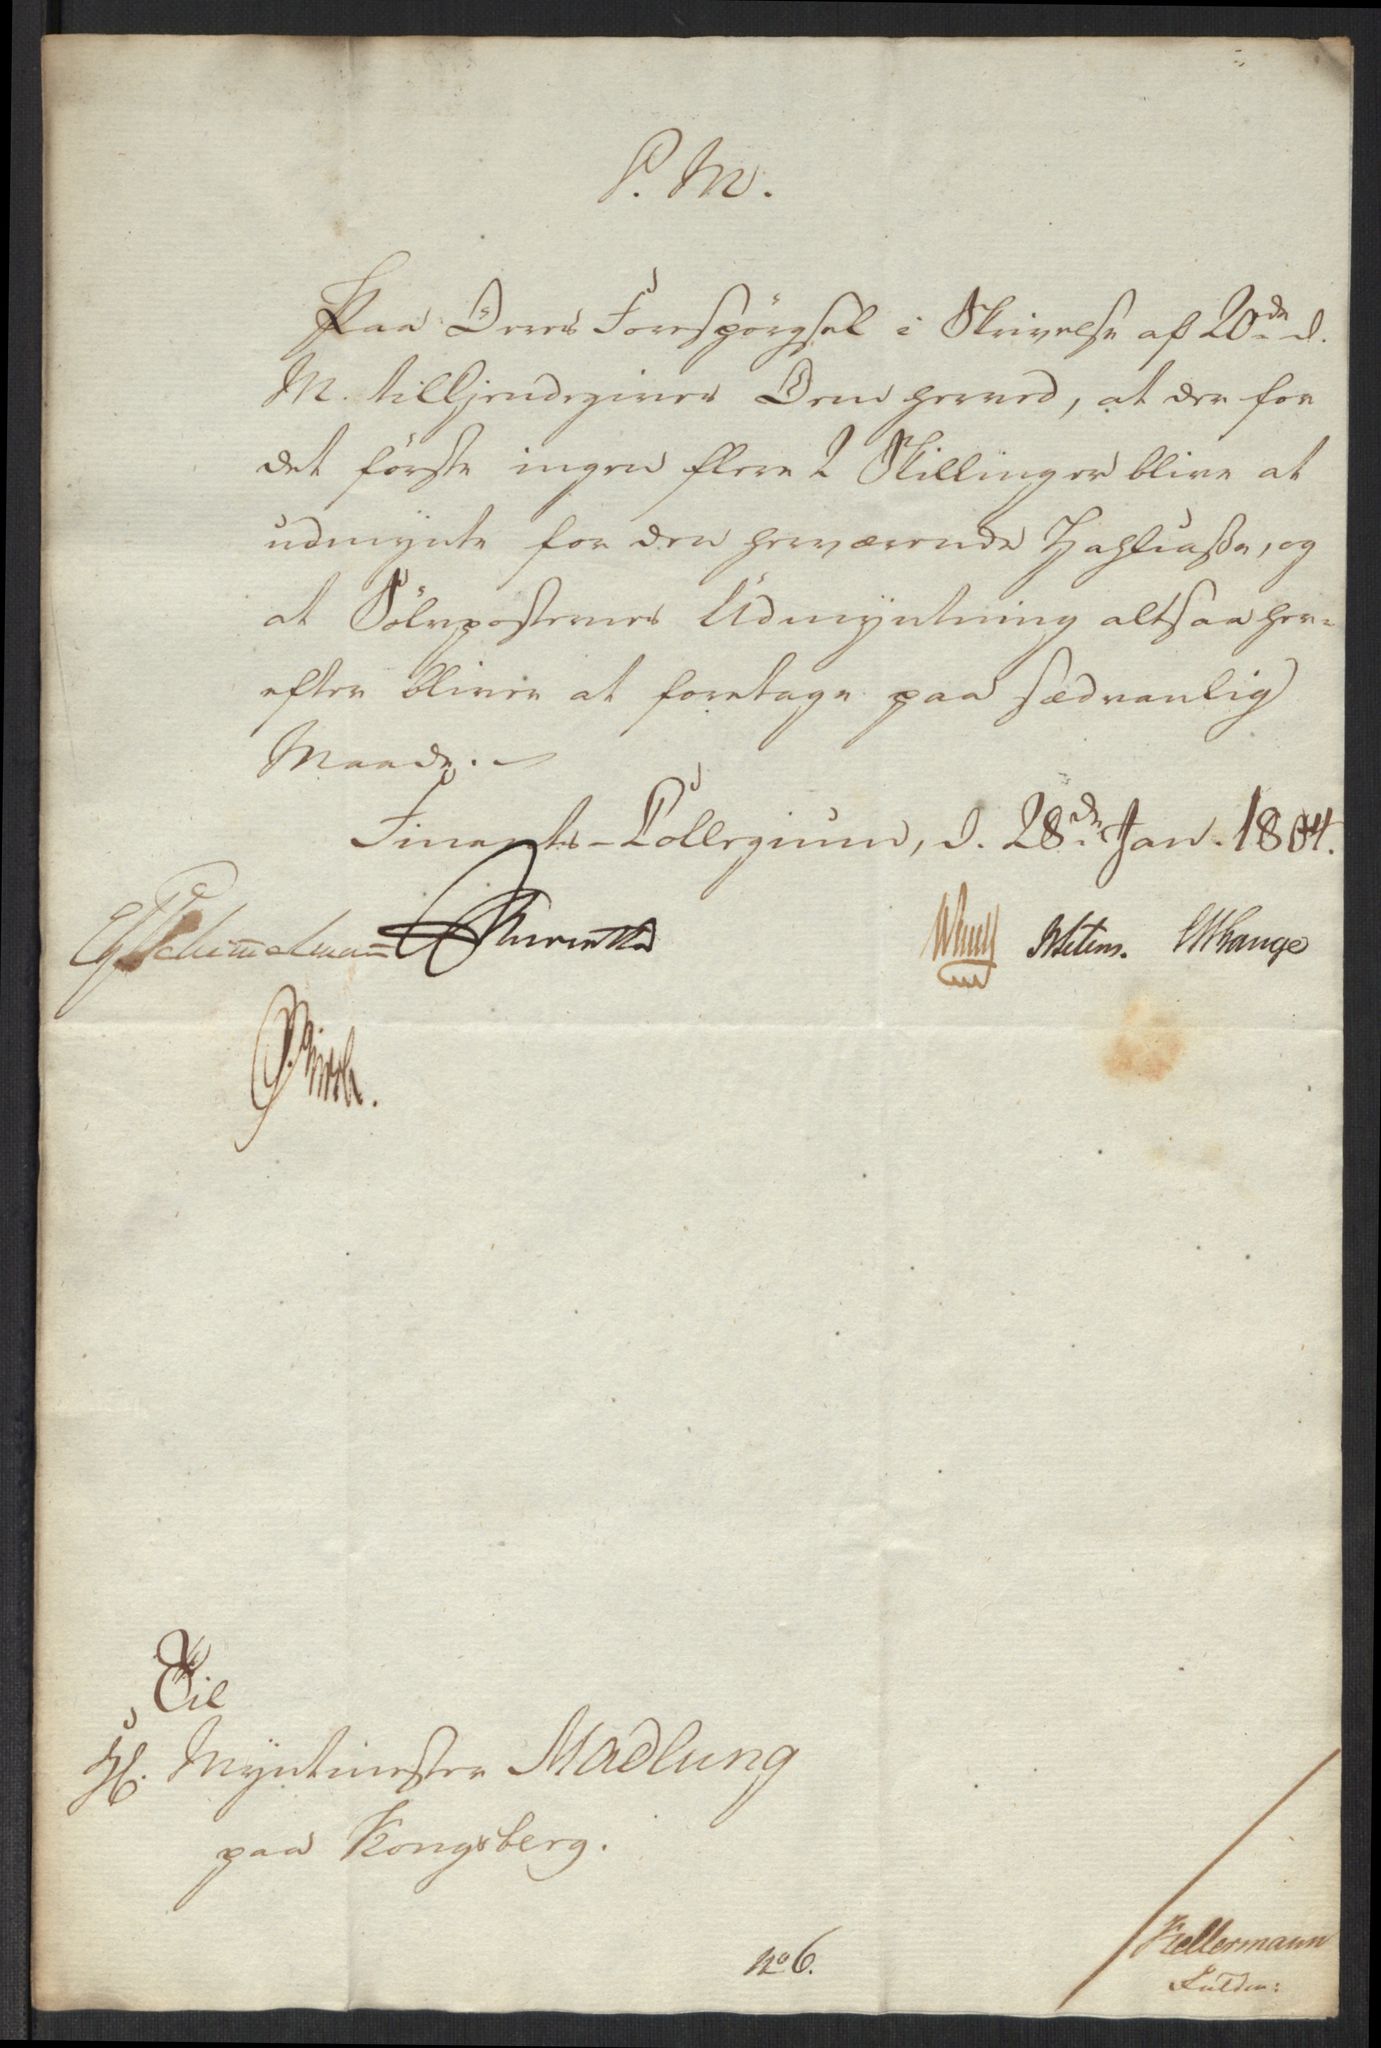 P. M.
Paa Deres Forespörgsel i Skrivelse af 20de d.
M. tilkjendegives Dem herved, at der for
det förste ingen flere 2 Skillinger blive at
udmynte for den herværende Zahlkasse, og
at Sölvposternes Udmyntning altsaa her-
efter bliver at foretage paa sædvanlig
Maade.
Finants-Collegium, d. 28de Jan. 1804.
Schimmelmann
Til
H. Myntmester Madlung
paa Kongsberg.
No 6.
Kellermann